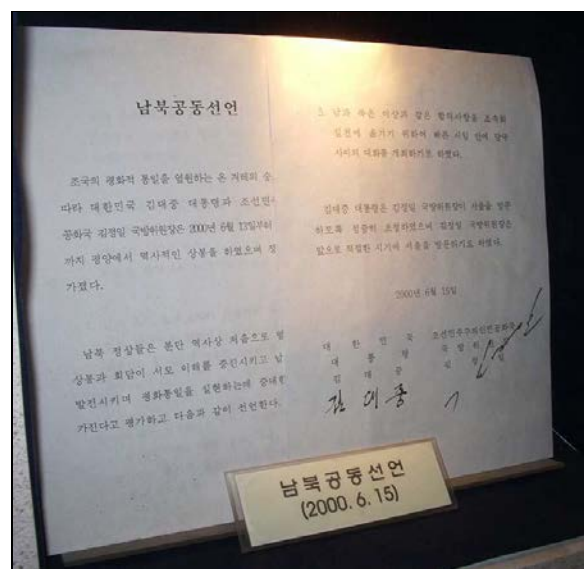 남북공동선언
조국의 평화적 통일을 염원하는 온 겨레의 숭
따라 대한민국 김대중 대통령과 조선민
공화국 김정일 국방위원장은 2000년 6월 13일부터
까지 평양에서 역사적인 상봉을 하였으며 정
가졌다.
남북 정상들은 분단 역사상 처음으로 열
상봉과 회담이 서로 이해를 증진시키고 남
발전시키며 평화통일을 실현하는데 중대한
가진다고 평가하고 다음과 같이 선언한다.
5. 남과 북은 이상과 같은 합의사항을 조속히
실천에 옮기기 위하여 빠른 시일 안에 당국
사이의 대화를 개최하기로 하였다.
김대중 대통령은 김정일 국방위원장이 서울을 방문
하도록 정중히 초청하였으며 김정일 국방위원장은
앞으로 적절한 시기에 서울을 방문하기로 하였다.
2000년 6월 15일
대한민국 조선민주주의인민공화국
대통령 국방위
김대중 김정일
김대중
남북공동선언
(2000. 6. 15)